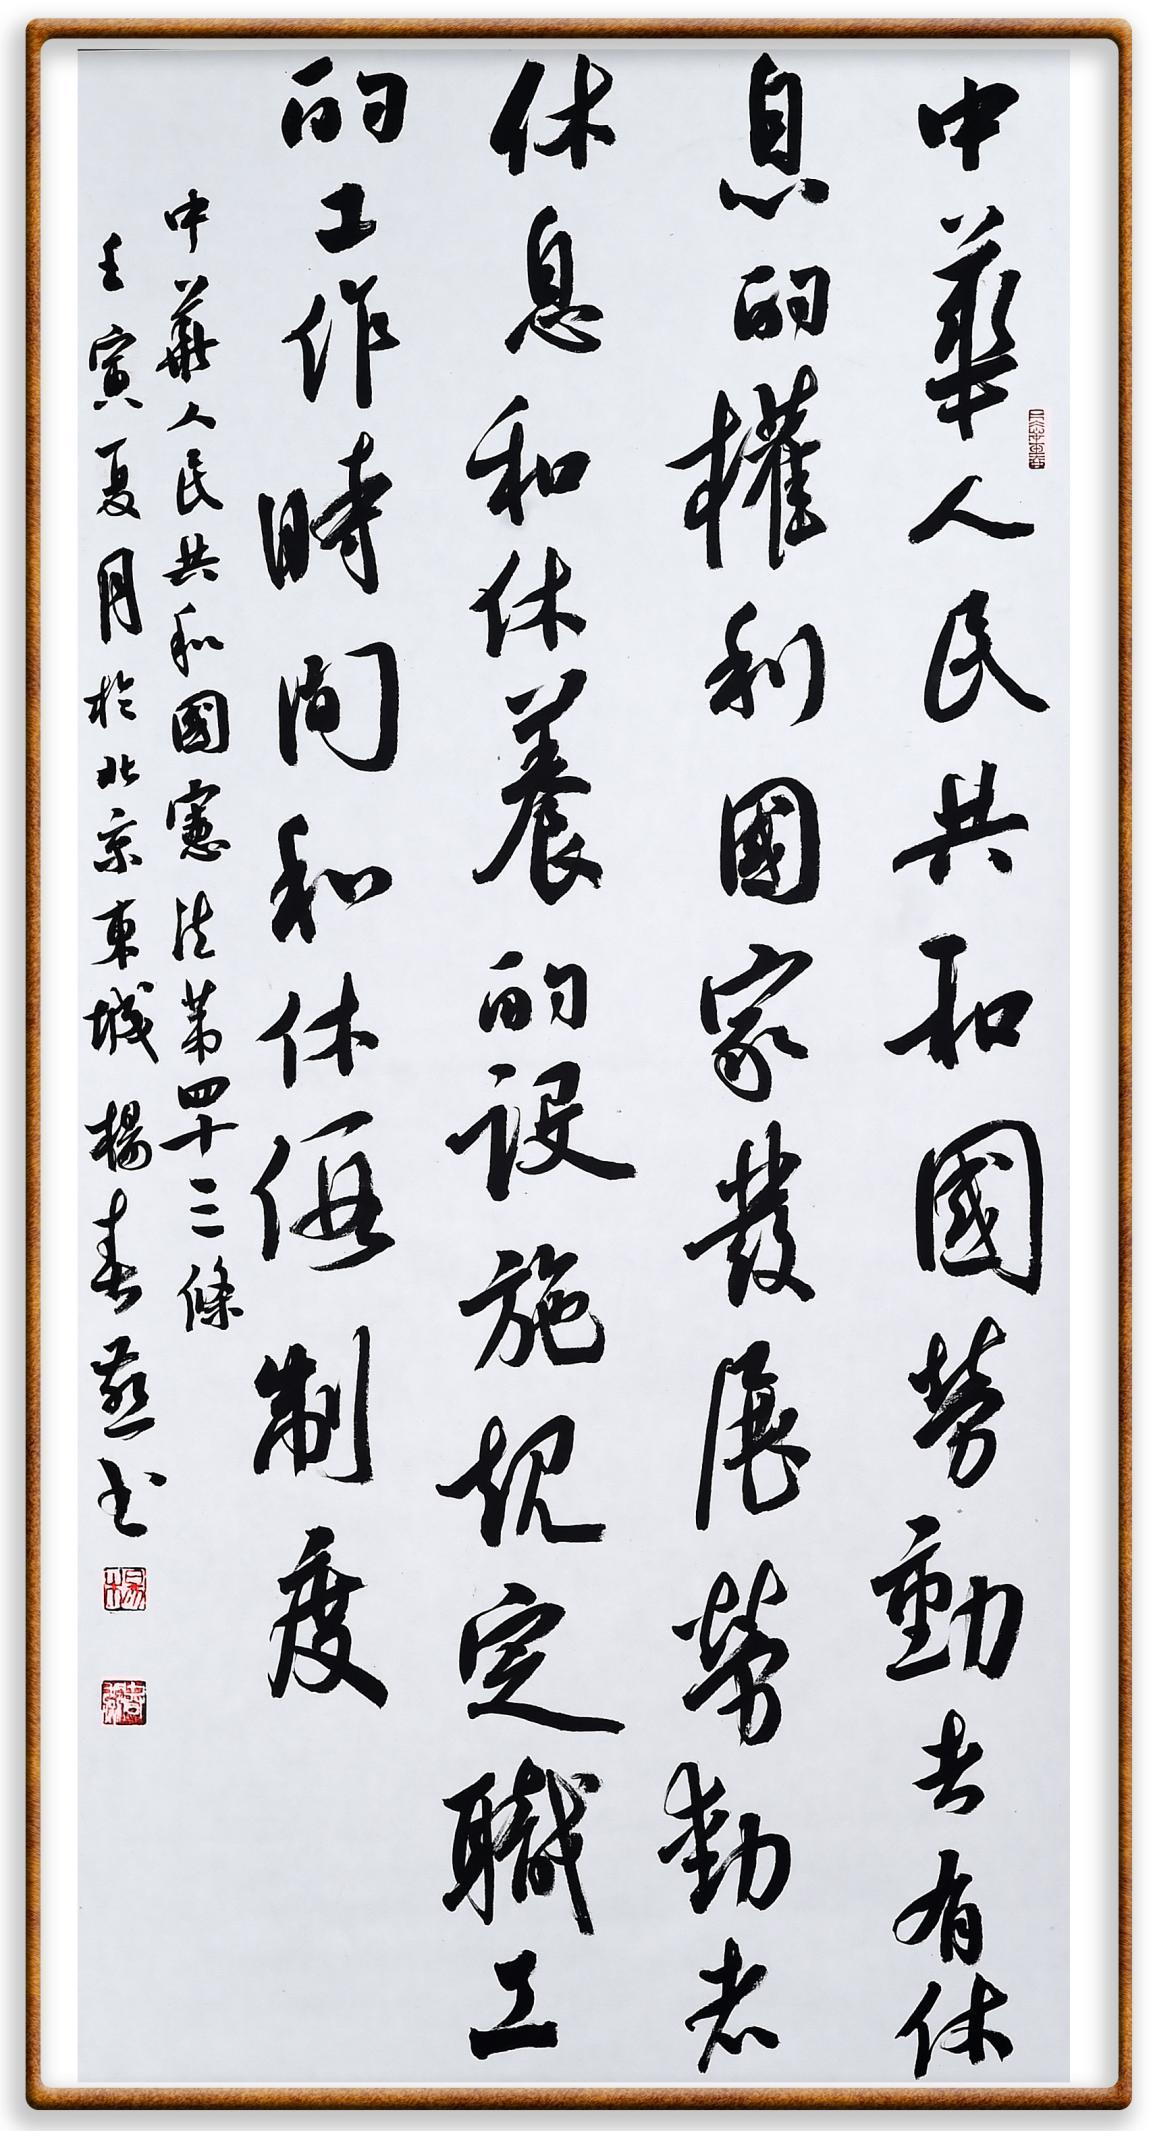 中華人民共和國勞動者有休
息的權利國家發展勞動者
休息和休養的設施規定職工
的工作時間和休假制度
中華人民共和國憲法第四十三條
壬寅夏月於北京東城楊春燕书